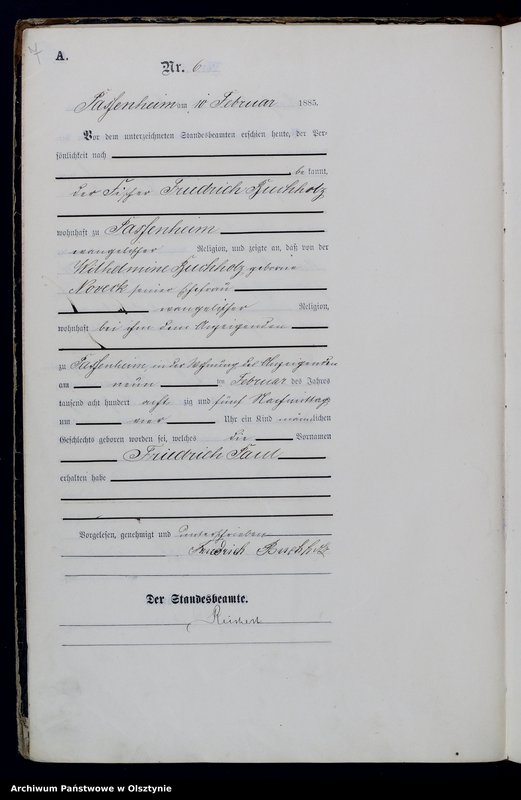 A.
Nr. 6
Passenheim am 10 Februar 1885.
Vor dem unterzeichneten Standesbeamten erschien heute, der Per-
sönlichkeit nach
bekannt,
der Fischer Friedrich Buchholz
wohnhaft zu Passenheim
evangelischer Religion, und zeigte an, daß von der
Wilhelmine Buchholz geborne
Noveck seiner Ehefrau
evangelischer Religion,
wohnhaft bei ihm dem Anzeigenden
zu Passenheim, in der Wohnung des Anzeigenden
am neun ten Februar des Jahres
tausend acht hundert acht zig und fünf Nachmittags
um vier Uhr ein Kind männlichen
Geschlechts geboren worden sei, welches die Vornamen
Friedrich Paul
erhalten habe
Vorgelesen, genehmigt und unterschrieben
Friedrich Buchholz
Der Standesbeamte.
Archiwum Państwowe w Olsztynie